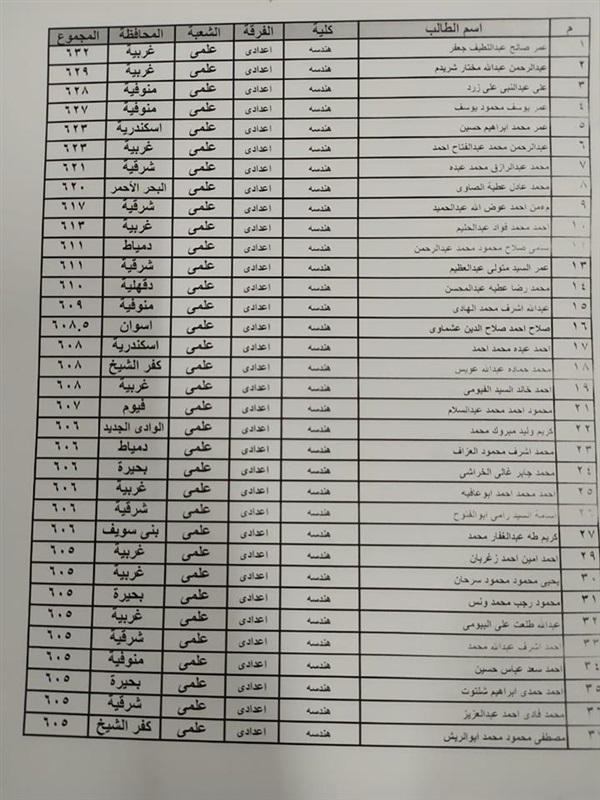 م اسم الطالب كلية الفرقة الشعبة المحافظة المجموع
١ عمر صالح عبداللطيف جعفر هندسه اعدادى علمى غربية ٦٣٢
٢ عبدالرحمن عبدالله مختار شريدم هندسه اعدادى علمى غربية ٦٢٩
٣ على عبدالنبى على زرد هندسه اعدادى علمى منوفية ٦٢٨
٤ عمر يوسف محمود يوسف هندسه اعدادى علمى منوفية ٦٢٧
٥ عمر محمد ابراهيم حسين هندسه اعدادى علمى اسكندرية ٦٢٣
٦ عبدالرحمن محمد عبدالفتاح احمد هندسه اعدادى علمى غربية ٦٢٣
٧ محمد عبدالرازق محمد عبده هندسه اعدادى علمى شرقية ٦٢١
٨ محمد عادل عطية الصاوى هندسه اعدادى علمى البحر الأحمر ٦٢٠
٩ مؤمن احمد عوض الله عبدالحميد هندسه اعدادى علمى شرقية ٦١٧
١٠ احمد محمد فواد عبدالحليم هندسه اعدادى علمى غربية ٦١٣
١١ صلاح محمود محمد عبدالرحمن هندسه اعدادى علمى دمياط ٦١١
١٣ عمر السيد متولى عبدالعظيم هندسه اعدادى علمى شرقية ٦١١
١٤ محمد رضا عطيه عبدالمحسن هندسه اعدادى علمى دقهلية ٦١٠
١٥ عبدالله اشرف محمد الهادى هندسه اعدادى علمى منوفية ٦٠٩
١٦ صلاح احمد صلاح الدين عشماوى هندسه اعدادى علمى اسوان ٦٠٨.٥
١٧ احمد عبده محمد احمد هندسه اعدادى علمى اسكندرية ٦٠٨
١٨ محمد حماده عبدالله عويس هندسه اعدادى علمى كفر الشيخ ٦٠٨
١٩ احمد خالد السيد الفيومى هندسه اعدادى علمى غربية ٦٠٨
٢١ محمود احمد محمد عبدالسلام هندسه اعدادى علمى فيوم ٦٠٧
٢٢ كريم وليد مبروك محمد هندسه اعدادى علمى الوادى الجديد ٦٠٦
٢٣ محمد اشرف محمود العزاف هندسه اعدادى علمى دمياط ٦٠٦
٢٤ محمد جابر غالى الخراشى هندسه اعدادى علمى بحيرة ٦٠٦
٢٥ احمد محمد احمد ابوعافيه هندسه اعدادى علمى غربية ٦٠٦
٢٦ اسامة السيد رامى ابوالفتوح هندسه اعدادى علمى شرقية ٦٠٦
٢٧ كريم طه عبدالغفار محمد هندسه اعدادى علمى بنى سويف ٦٠٦
٢٩ احمد امين احمد زغربان هندسه اعدادى علمى غربية ٦٠٥
٣٠ يحيى محمود محمود سرحان هندسه اعدادى علمى غربية ٦٠٥
٣١ محمود رجب محمد ونس هندسه اعدادى علمى بحيرة ٦٠٥
٣٢ عبدالله طلعت على البيومى هندسه اعدادى علمى غربية ٦٠٥
٣٣ احمد اشرف عبدالله محمد هندسه اعدادى علمى شرقية ٦٠٥
٣٤ احمد سعد عباس حسين هندسه اعدادى علمى منوفية ٦٠٥
٣٥ احمد حمدى ابراهيم شلتوت هندسه اعدادى علمى بحيرة ٦٠٥
٣٦ محمد فادى احمد عبدالعزيز هندسه اعدادى علمى شرقية ٦٠٥
مصطفى محمود محمد ابوالريش هندسه اعدادى علمى كفر الشيخ ٦٠٥